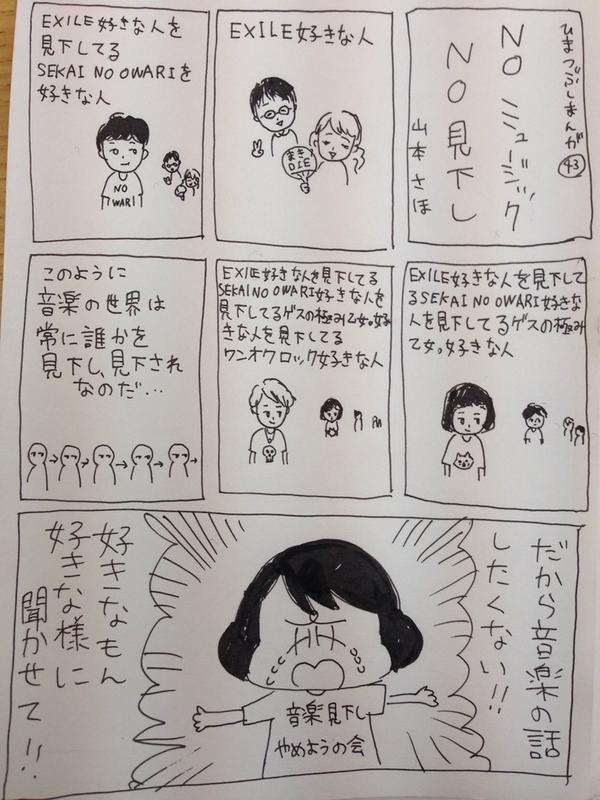 ひまつぶしまんが 43
NO ミュージック
NO 見下し
山本さほ
EXILE好きな人
まきDIE
EXILE好きな人を
見下してる
SEKAI NO OWARIを
好きな人
NO
WARI
EXILE好きな人を見下して
るSEKAI NO OWARI好きな
人を見下してるゲスの極み
乙女。好きな人
EXILE好きな人を見下してる
SEKAI NO OWARI好きな人を
見下してるゲスの極み乙女。好
きな人を見下してる
ワンオクロック好きな人
このように
音楽の世界は
常に誰かを
見下し、見下され
なのだ…
だから音楽の話
したくない!!
音楽見下し
やめようの会
好きなもん
好きな様に
聞かせて!!